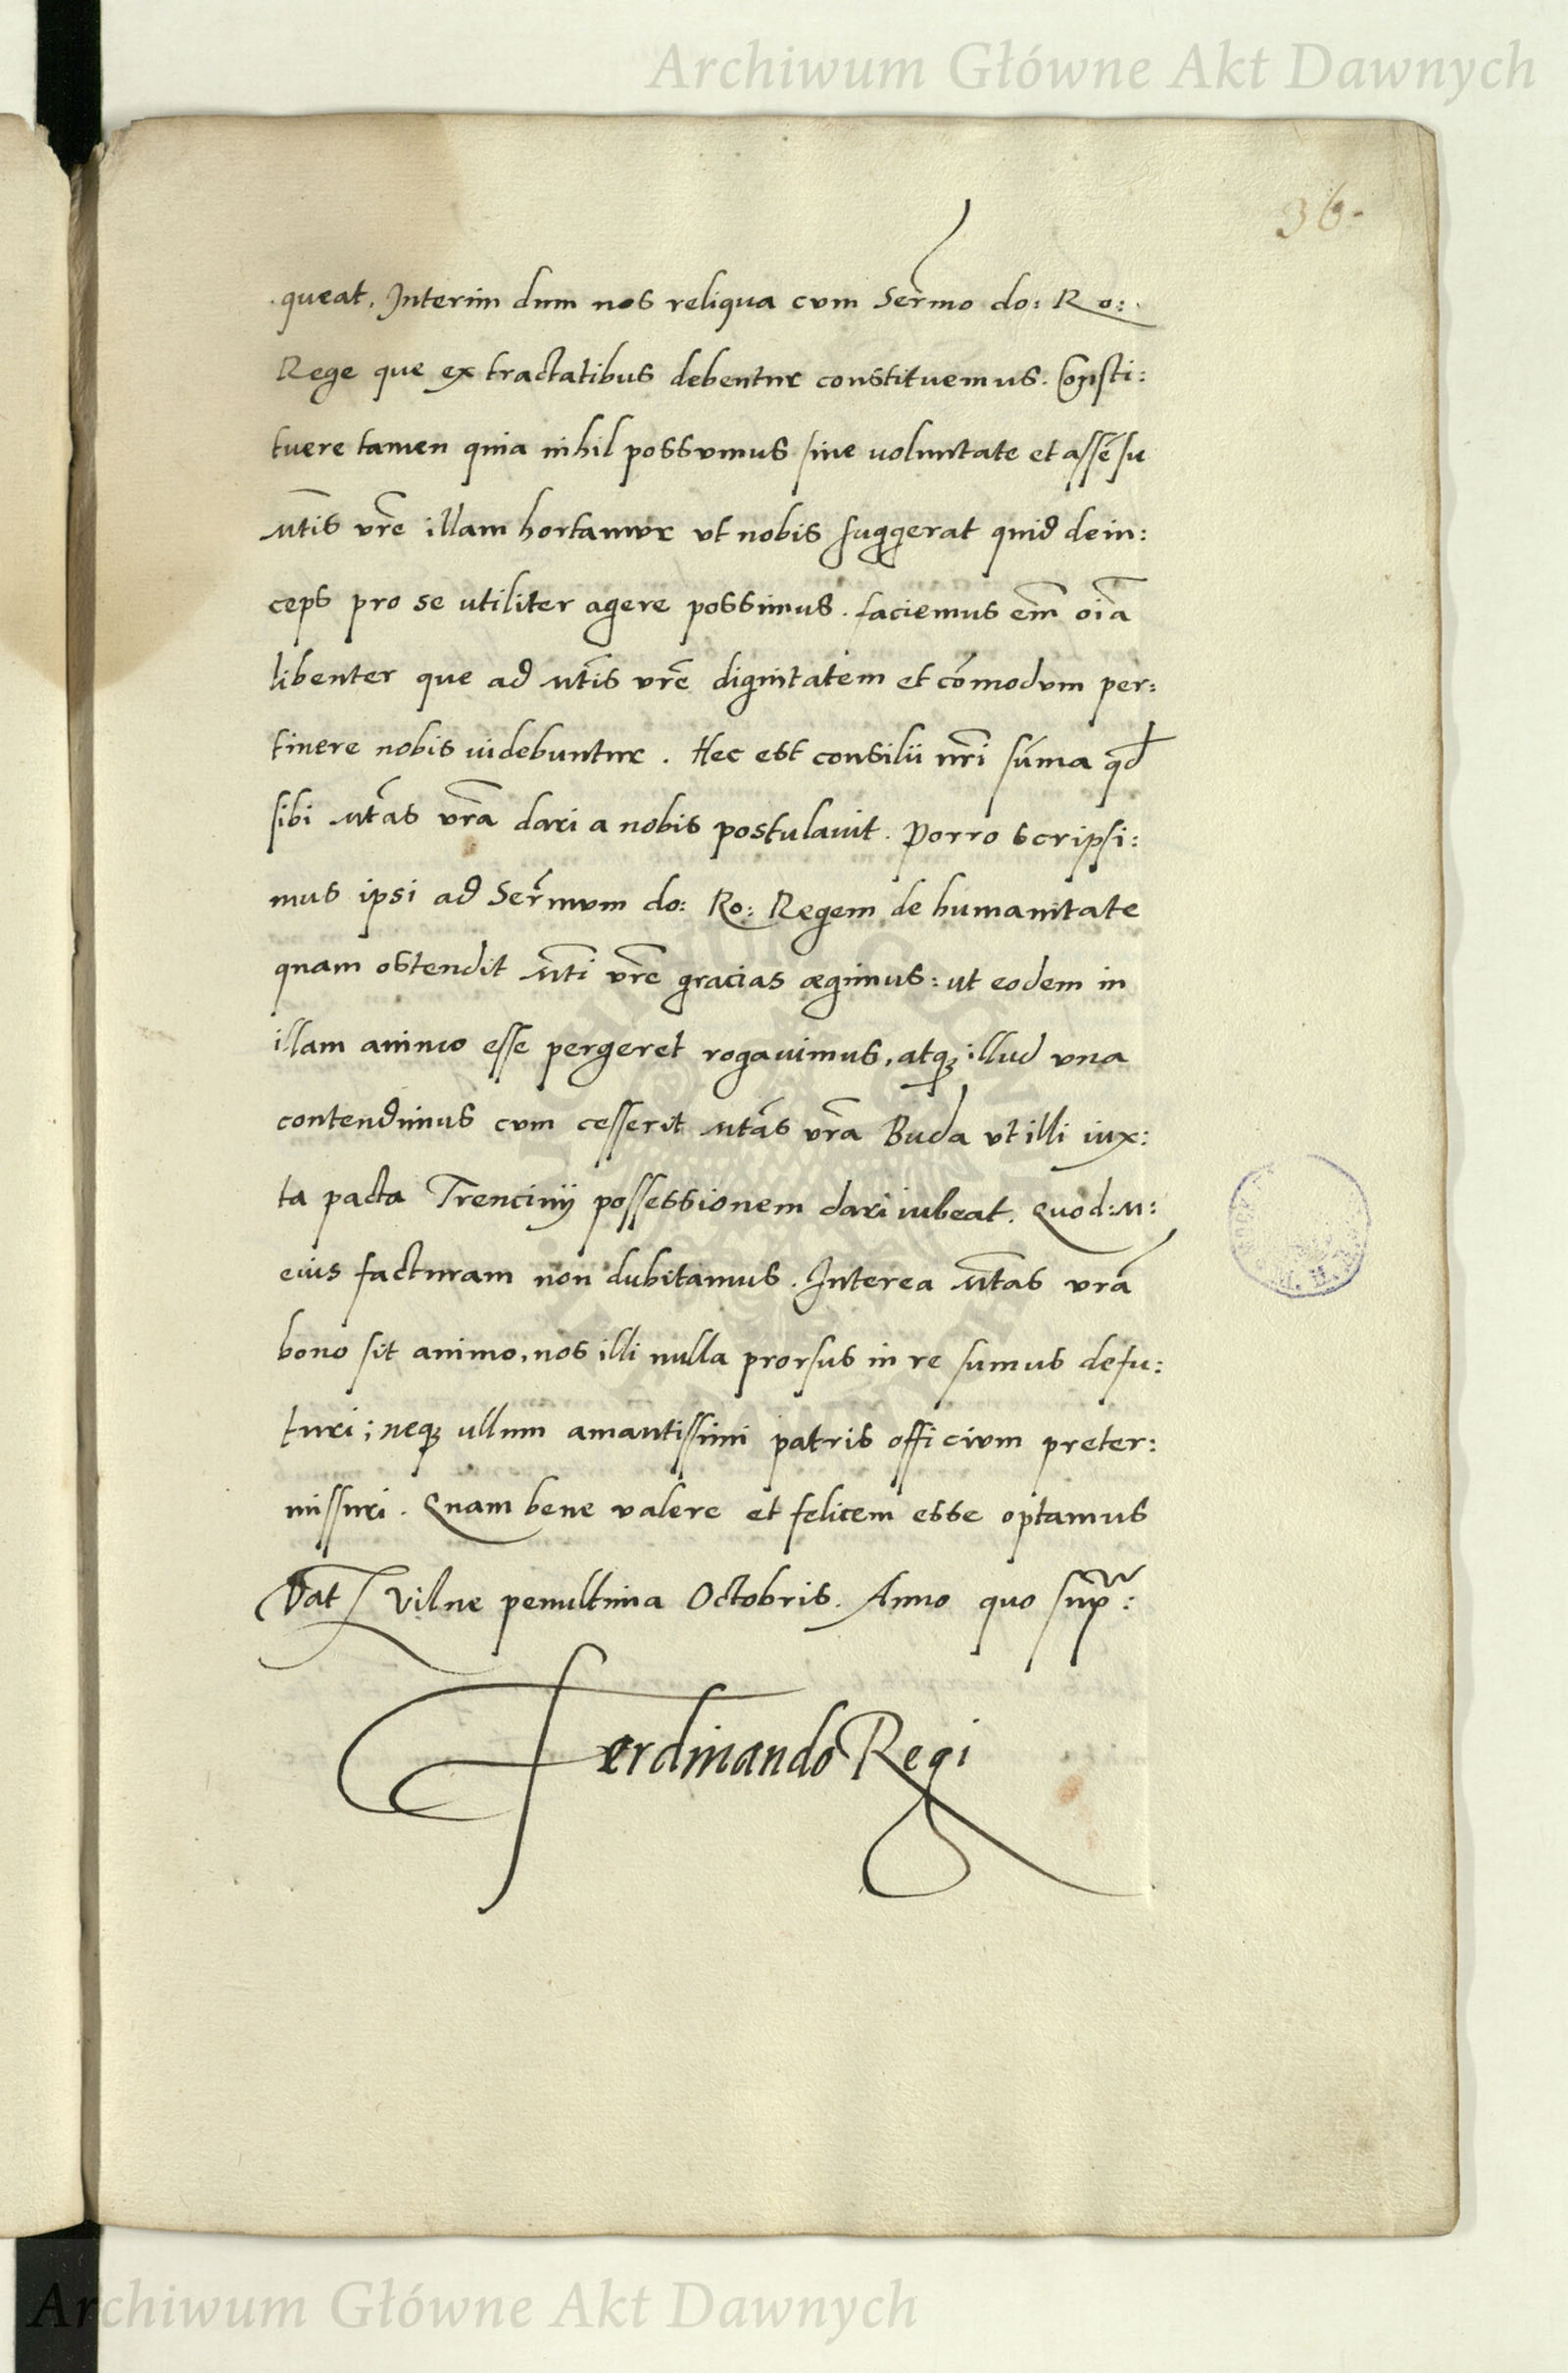 Archiwum Główne Akt Dawnych
36.
queat. Interim dum nos reliqua cum Serͫmo do: Ro:
Rege que ex tractatibus debentur constituemus. Consti:
tuere tamen quia nihil possumus sine voluntate et assēsu
Mt̄is vr̄e illam hortamur ut nobis suggerat quid dein:
ceps pro se utiliter agere possimus. faciemus em̄ oīa
libenter que ad Mt̄is vr̄e dignitatem et cōmodum per:
tinere nobis uidebuntur. Hec est consilii nr̄i sūma qd̄
sibi Mt̄as vr̄a dari a nobis postulauit. Porro scripsi:
mus ipsi ad Ser̄mum do: Ro: Regem de humanitate
quam ostendit Mt̄i vr̄e gracias ægimus: ut eodem in
illam animo esse pergeret rogauimus, atqꝫ illud una
contendimus cum cesserit Mt̄as vr̄a Buda ut illi iux:
ta pacta Trencinij possessionem dari iubeat. Quod: M:
eius facturam non dubitamus. Interea Mt̄as vr̄a
bono sit animo, nos illi nulla prorsus in re sumus defu:
turi; neqꝫ ullum amantissimi patris officium preter:
missuri. Quam bene valere et felicem esse optamus
Dat Vilne penultima Octobris. Anno quo sup:
Ferdinando Regi
Archiwum Główne Akt Dawnych